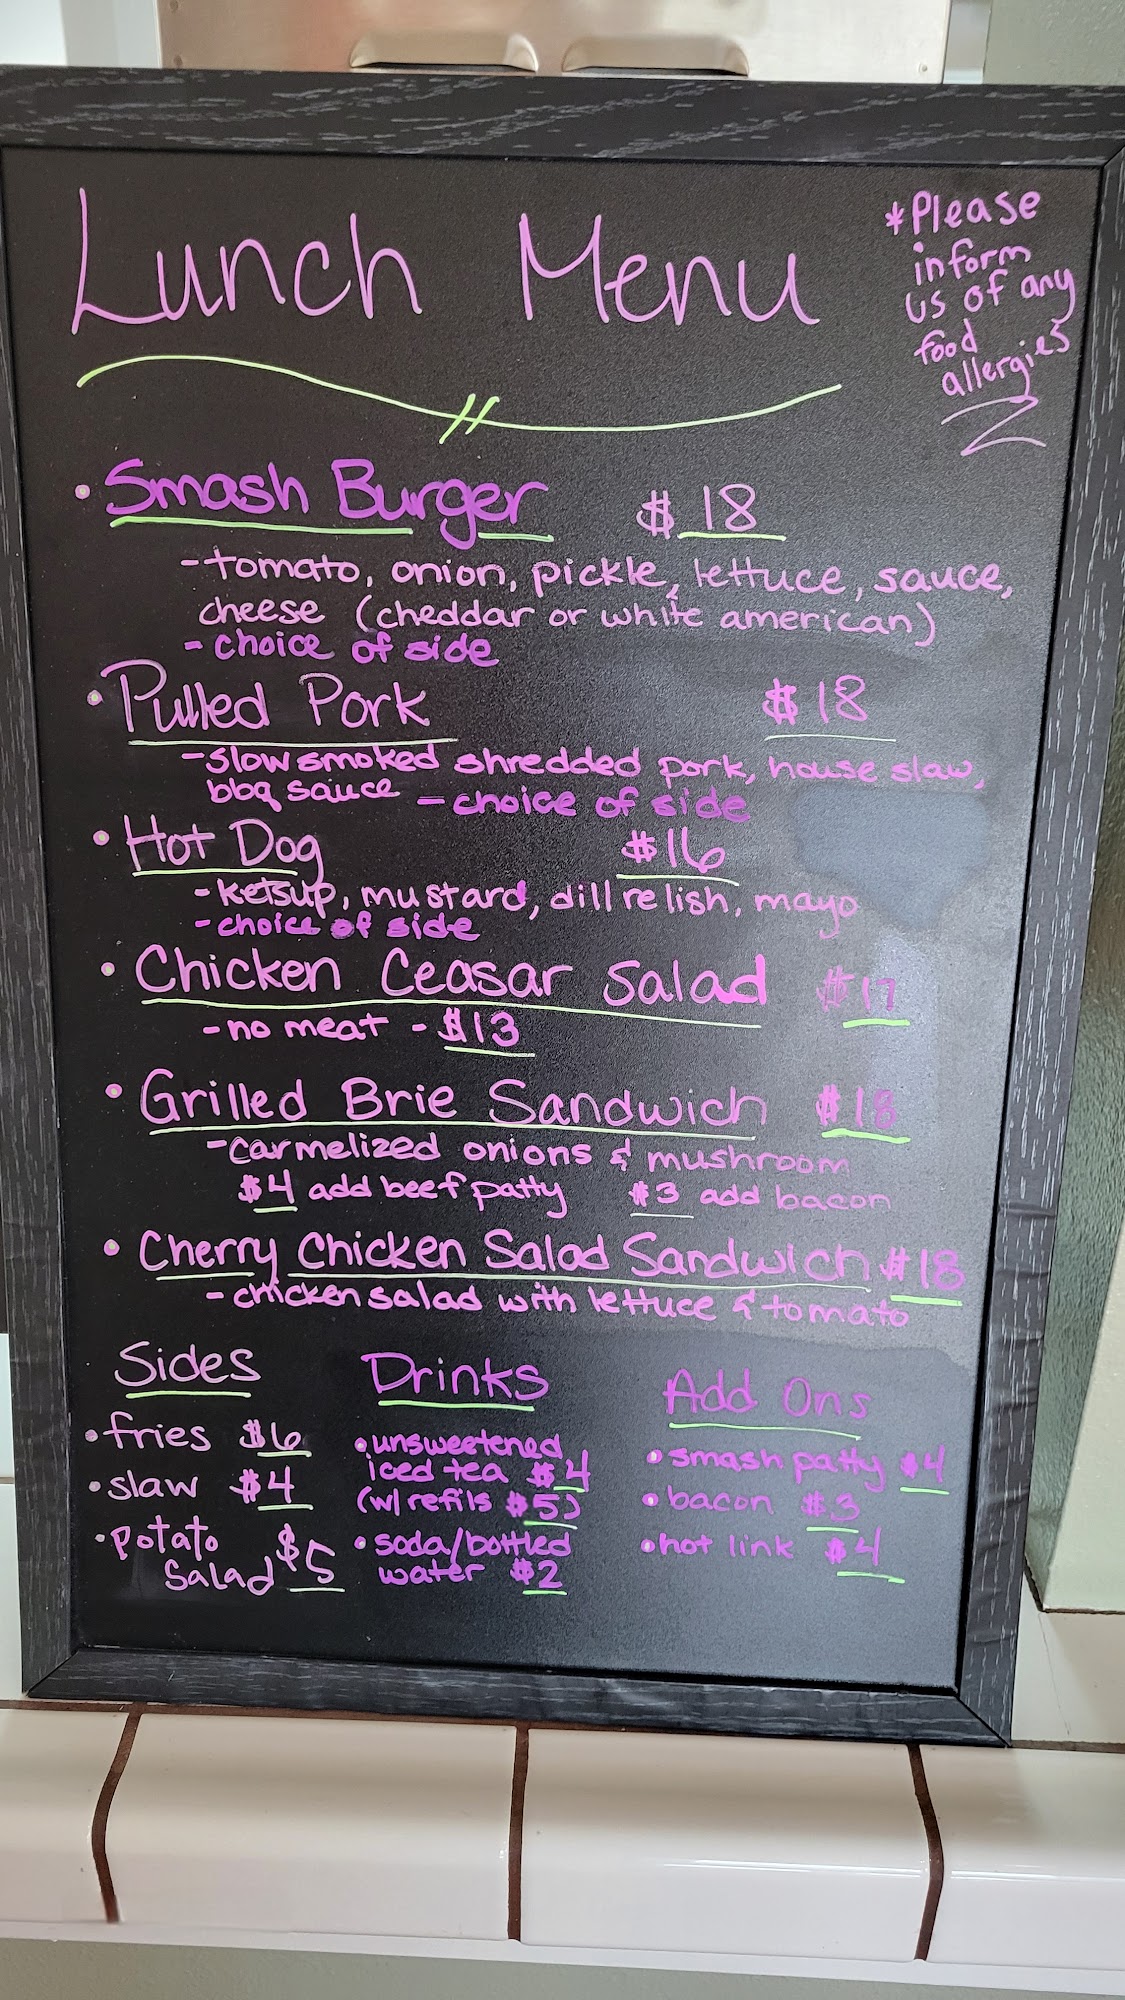 Lunch Menu
*Please
inform
us of any
food
allergies
• Smash Burger $18
-tomato, onion, pickle, lettuce, sauce,
cheese (cheddar or white american)
- choice of side
• Pulled Pork $18
-slow smoked shredded pork, house slaw,
bbq sauce - choice of side
• Hot Dog $16
-ketsup, mustard, dill relish, mayo
-choice of side
• Chicken Ceasar Salad $17
-no meat - $13
• Grilled Brie Sandwich $18
-carmelized onions & mushroom
$4 add beef patty $3 add bacon
• Cherry Chicken Salad Sandwich $18
- chicken salad with lettuce & tomato
Sides
• fries $6
• slaw $4
• potato
salad $5
Drinks
• unsweetened
iced tea $4
(w/ refils $5)
• soda/bottled
water $2
Add Ons
• smash patty $4
• bacon $3
• hot link $4